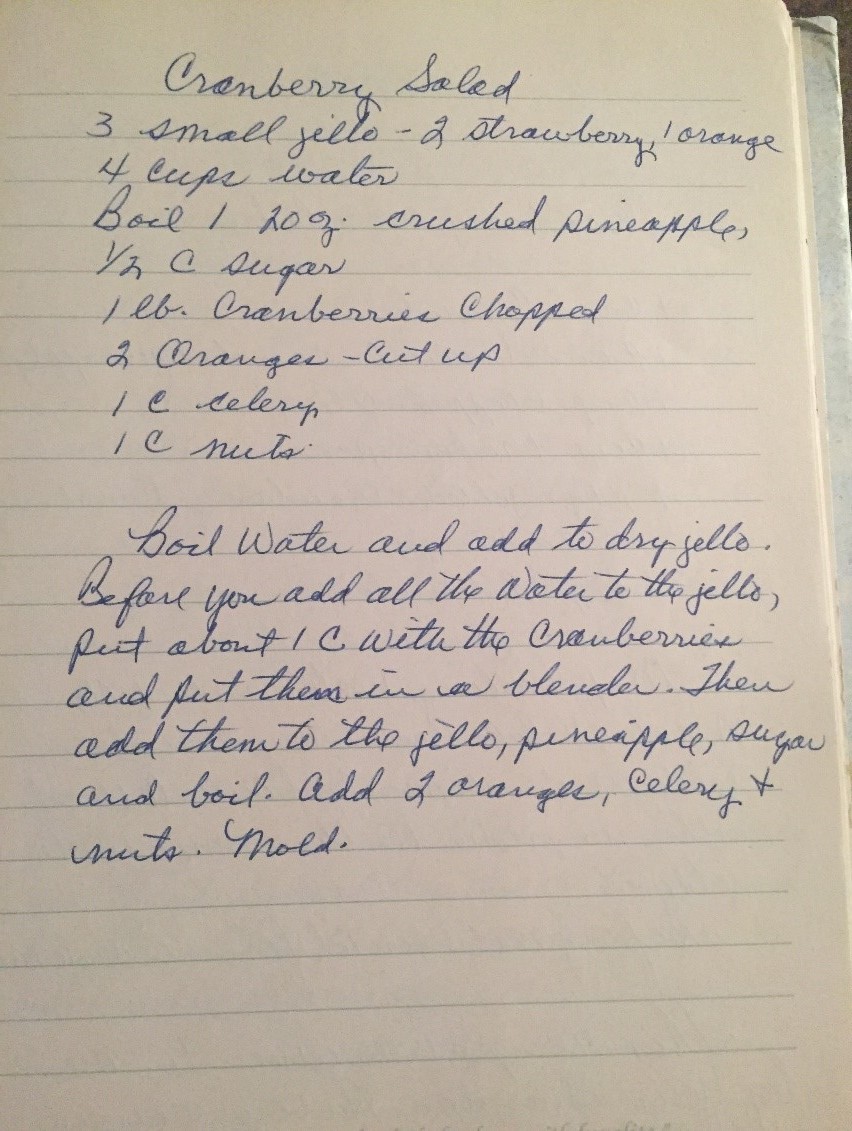 Cranberry Salad
3 small jello - 2 strawberry, 1 orange
4 cups water
Boil 1 20 oz. crushed pineapple,
1/2 C sugar
1 lb. Cranberries Chopped
2 Oranges - Cut up
1 C celery
1 C nuts
Boil Water and add to dry jello.
Before you add all the Water to the jello,
put about 1 C With the Cranberries
and put them in a blender. Then
add them to the jello, pineapple, sugar
and boil. Add 2 oranges, Celery +
nuts. Mold.